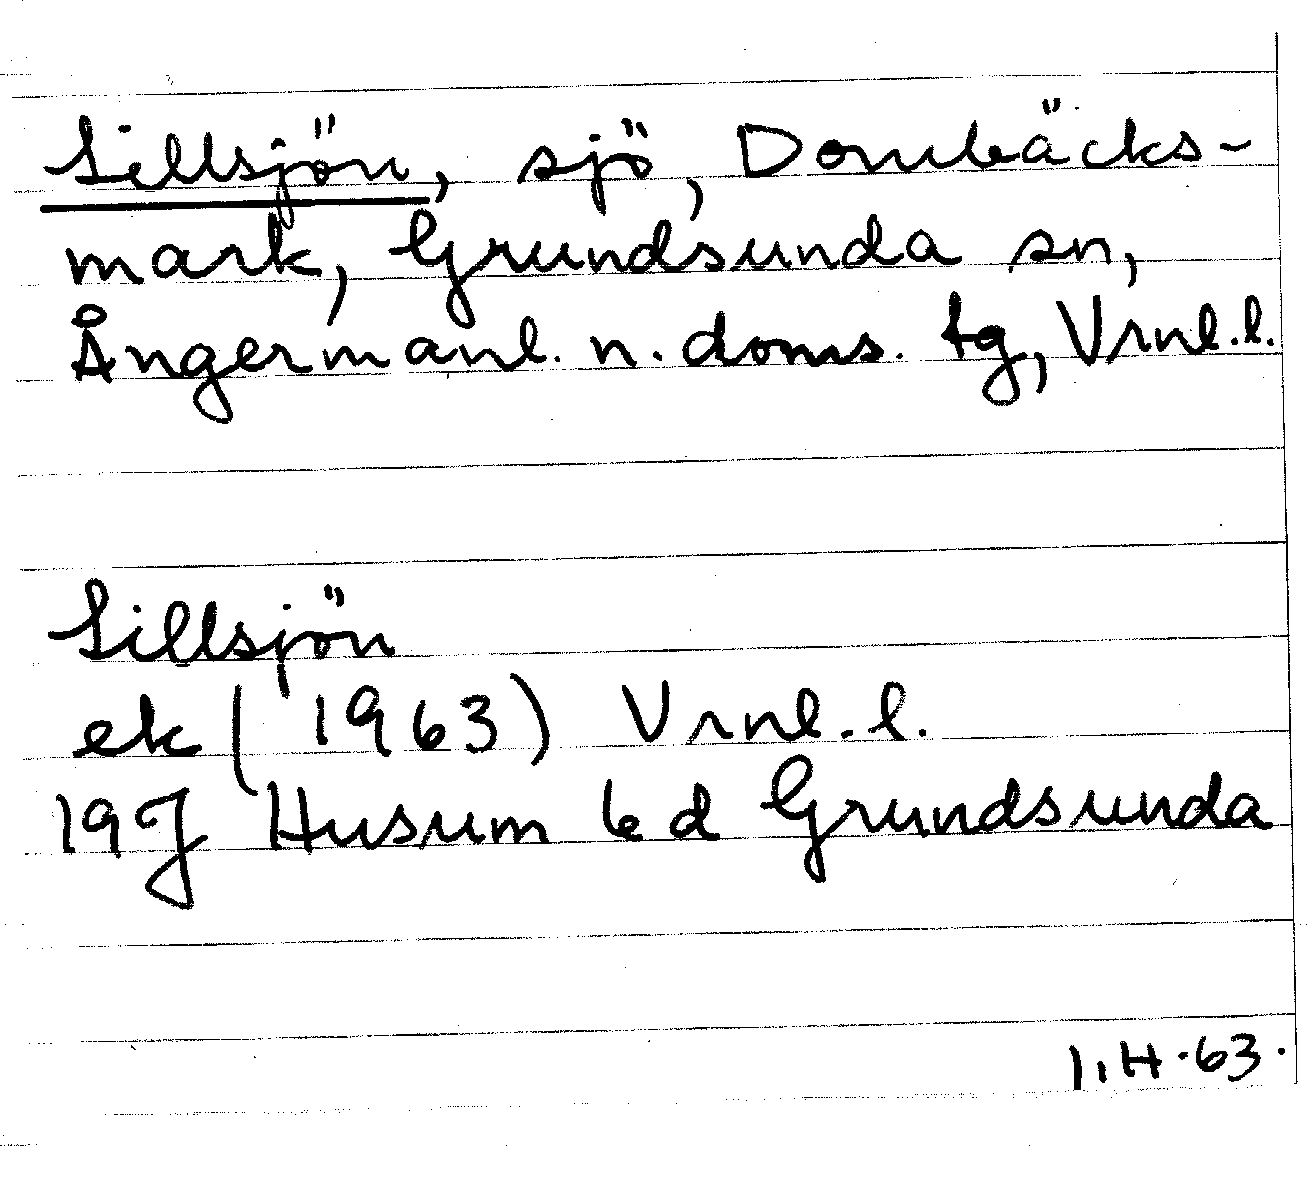 Sillsjön, sjö, Dombäcks-
mark, Grundsunda sn,
Ångermanl. n. doms. tg, Vrnl.l.
Sillsjön
ek (1963) Vrnl.l.
19J Husum bd Grundsunda
I.H.63.